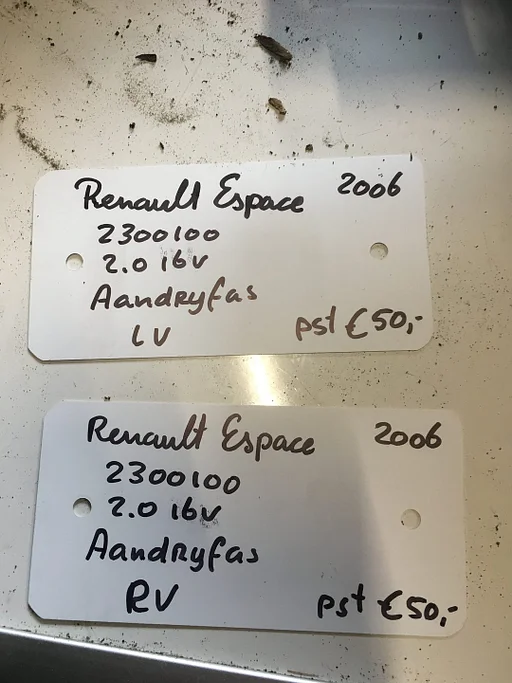 Renault Espace 2006
2300100
2.0 16v
Aandryfas
LV pst €50,-
Renault Espace 2006
2300100
2.0 16v
Aandryfas
RV pst €50,-